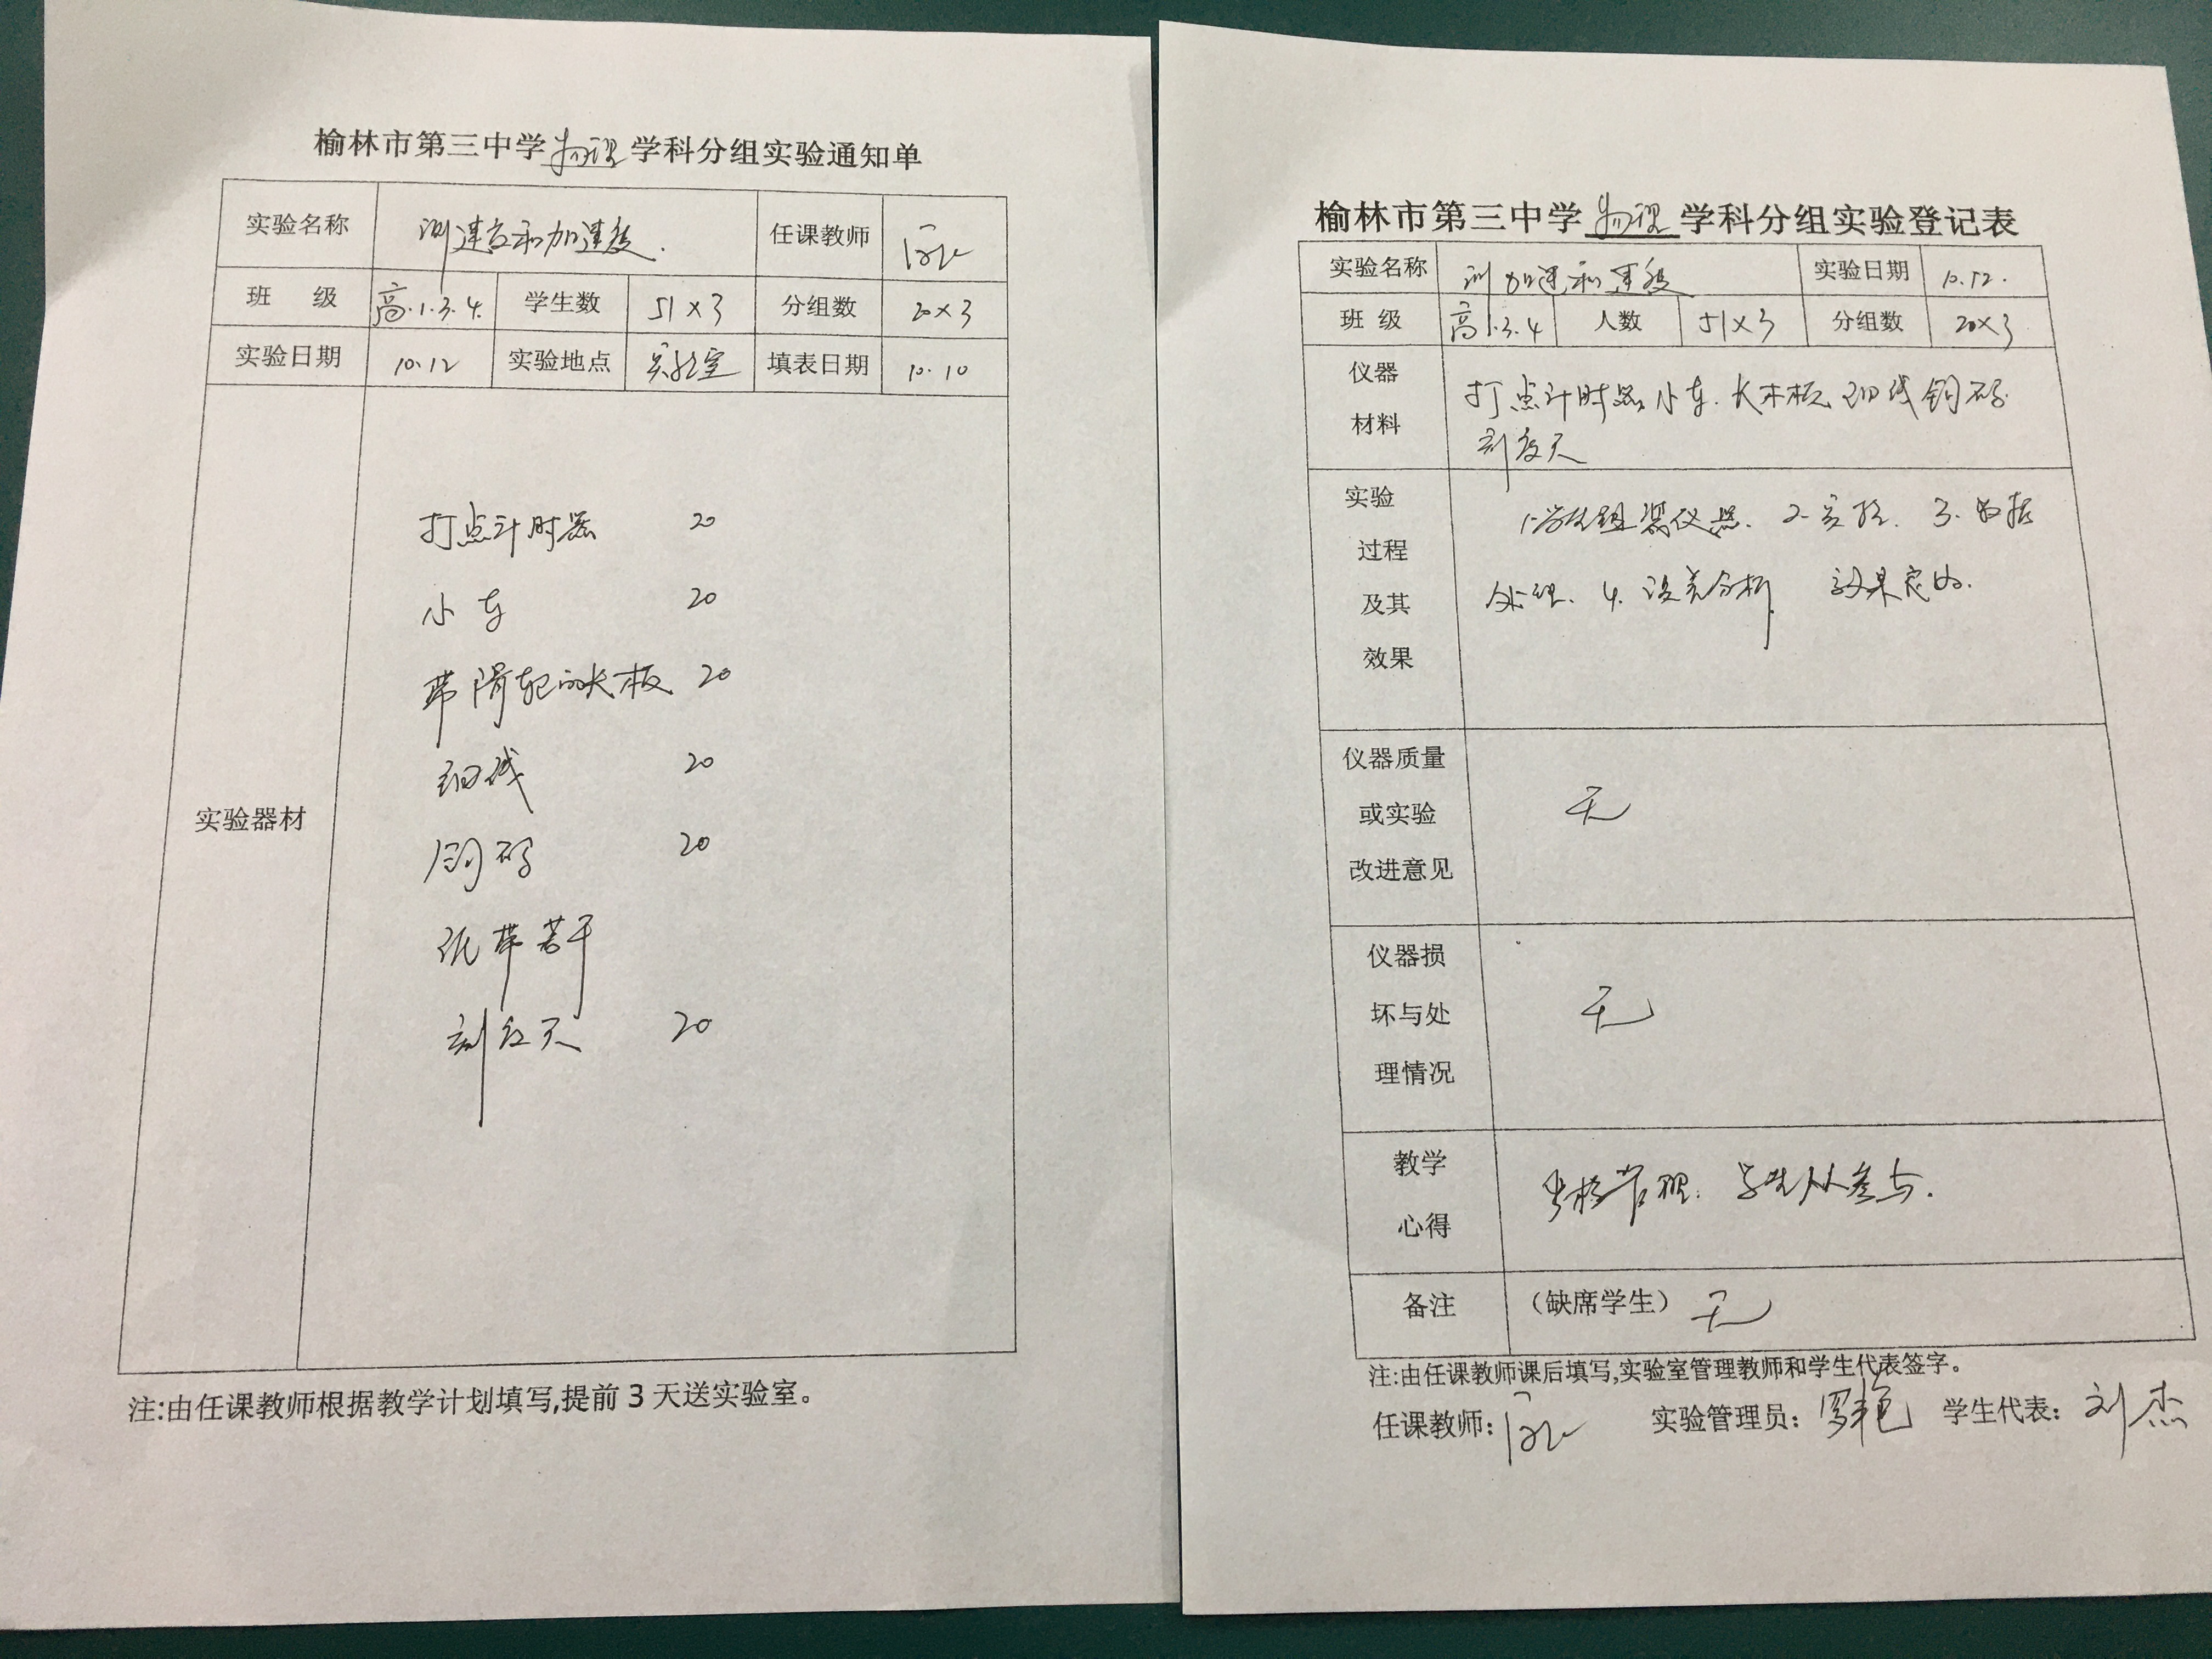 榆林市第三中学物理学科分组实验通知单
实验名称 测速度和加速度. 任课教师
班 级 高1.3.4. 学生数 51×3 分组数 20×3
实验日期 10.12 实验地点 实验室 填表日期 10.10
实验器材
打点计时器 20
小车 20
带滑轮的长板 20
细线 20
钩码 20
纸带若干
刻度尺 20
注:由任课教师根据教学计划填写,提前3天送实验室。
榆林市第三中学物理学科分组实验登记表
实验名称 测加速和速度 实验日期 10.12.
班 级 高1.3.4 人数 51×3 分组数 20×3
仪器
材料
打点计时器.小车.长木板.细线钩码.
刻度尺
实验
过程
及其
效果
1.学生组装仪器. 2.实验. 3.数据
处理. 4.误差分析. 效果良好.
仪器质量
或实验
改进意见
无
仪器损
坏与处
理情况
无
教学
心得
严格管理. 学生人人参与.
备注 (缺席学生) 无
注:由任课教师课后填写,实验室管理教师和学生代表签字。
任课教师: 实验管理员:罗艳 学生代表:刘杰